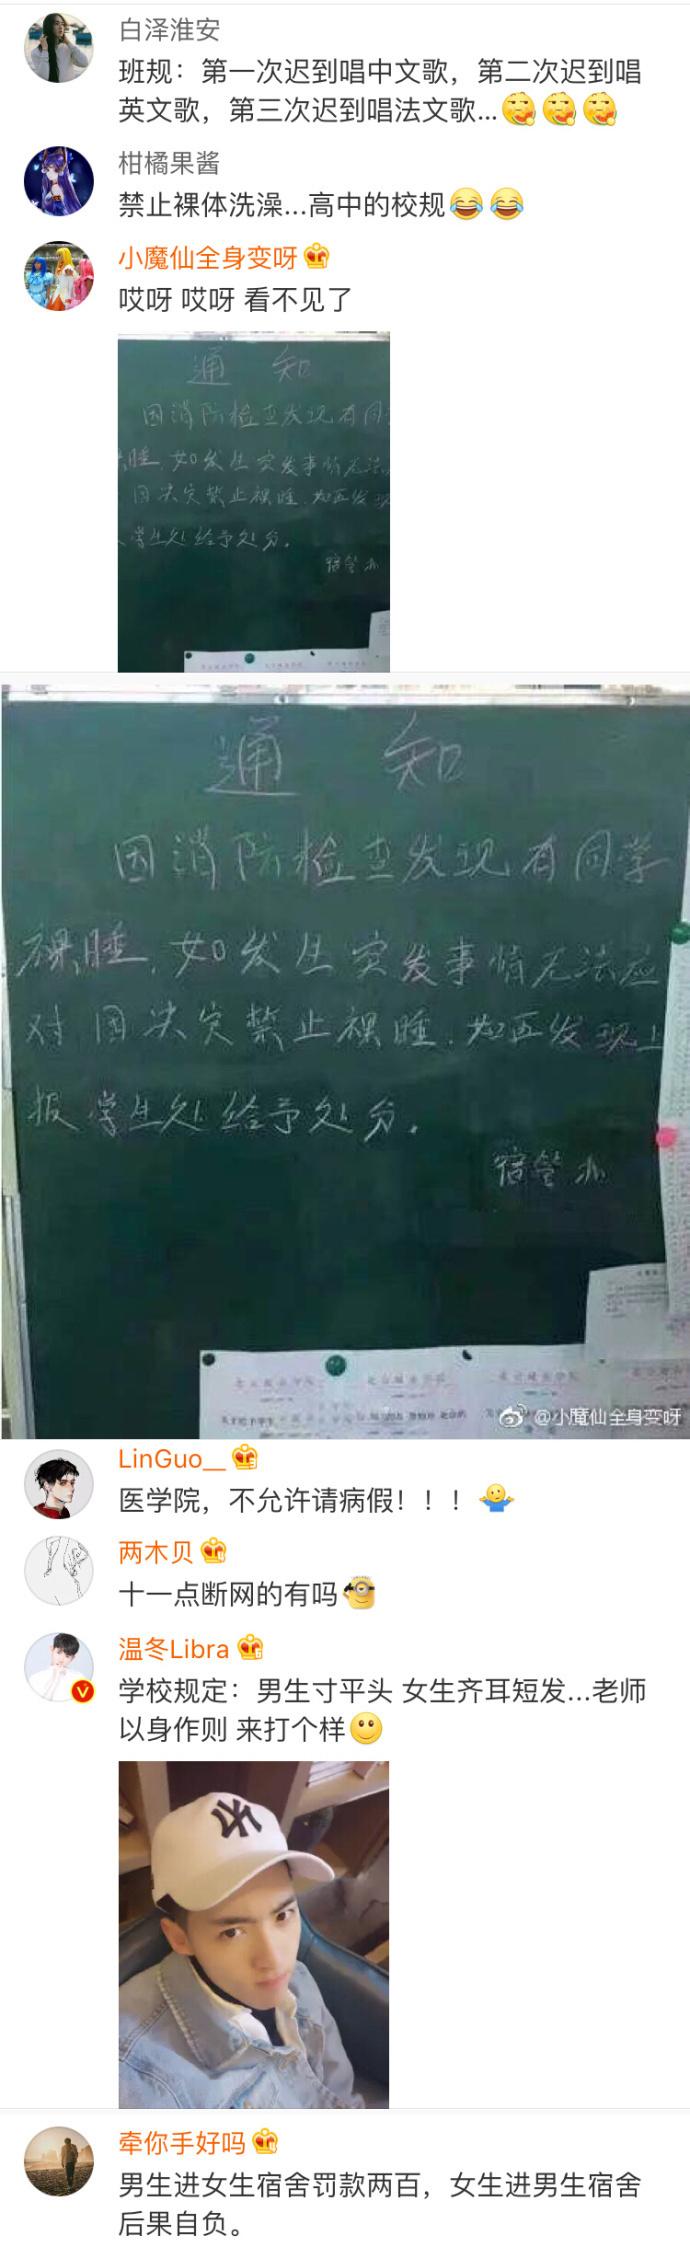 白泽淮安
班规：第一次迟到唱中文歌，第二次迟到唱
英文歌，第三次迟到唱法文歌...
柑橘果酱
禁止裸体洗澡...高中的校规
小魔仙全身变呀
哎呀 哎呀 看不见了
通 知
因消防检查发现有同
裸睡．如发生突发事情无法
因决定禁止裸睡．如再发现
学生处给予处分．
宿管办
通 知
因消防检查发现有同学
裸睡．如发生突发事情无法应
对因决定禁止裸睡．如再发现上
报学生处给予处分．
宿管办
@小魔仙全身变呀
LinGuo__
医学院，不允许请病假！！！
两木贝
十一点断网的有吗
温冬Libra
学校规定：男生寸平头 女生齐耳短发...老师
以身作则 来打个样
牵你手好吗
男生进女生宿舍罚款两百，女生进男生宿舍
后果自负。